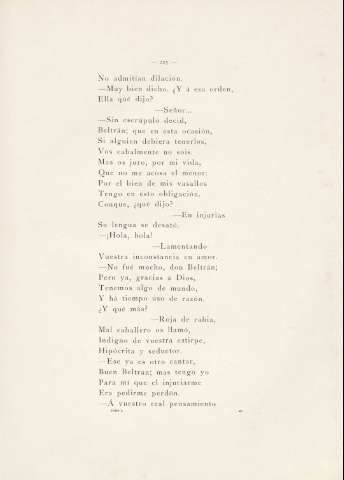 — 225 —
No admitían dilación.
—Muy bien dicho. ¿Y á esa orden,
Ella qué dijo?
—Señor...
—Sin escrúpulo decid,
Beltrán; que en esta ocasión,
Si alguien debiera tenerlos,
Vos cabalmente no sois.
Mas os juro, por mi vida,
Que no me acosa el menor:
Por el bien de mis vasallos
Tengo en esto obligación.
Conque, ¿qué dijo?
—En injurias
Su lengua se desató.
—¡Hola, hola!
—Lamentando
Vuestra inconstancia en amor.
—No fué mucho, don Beltrán;
Pero ya, gracias á Dios,
Tenemos algo de mundo,
Y há tiempo uso de razón.
¿Y qué más?
—Roja de rabia,
Mal caballero os llamó,
Indigno de vuestra estirpe,
Hipócrita y seductor.
—Ese ya es otro cantar,
Buen Beltrán; mas tengo yo
Para mí que el injuriarme
Era pedirme perdón.
—A vuestro real pensamiento